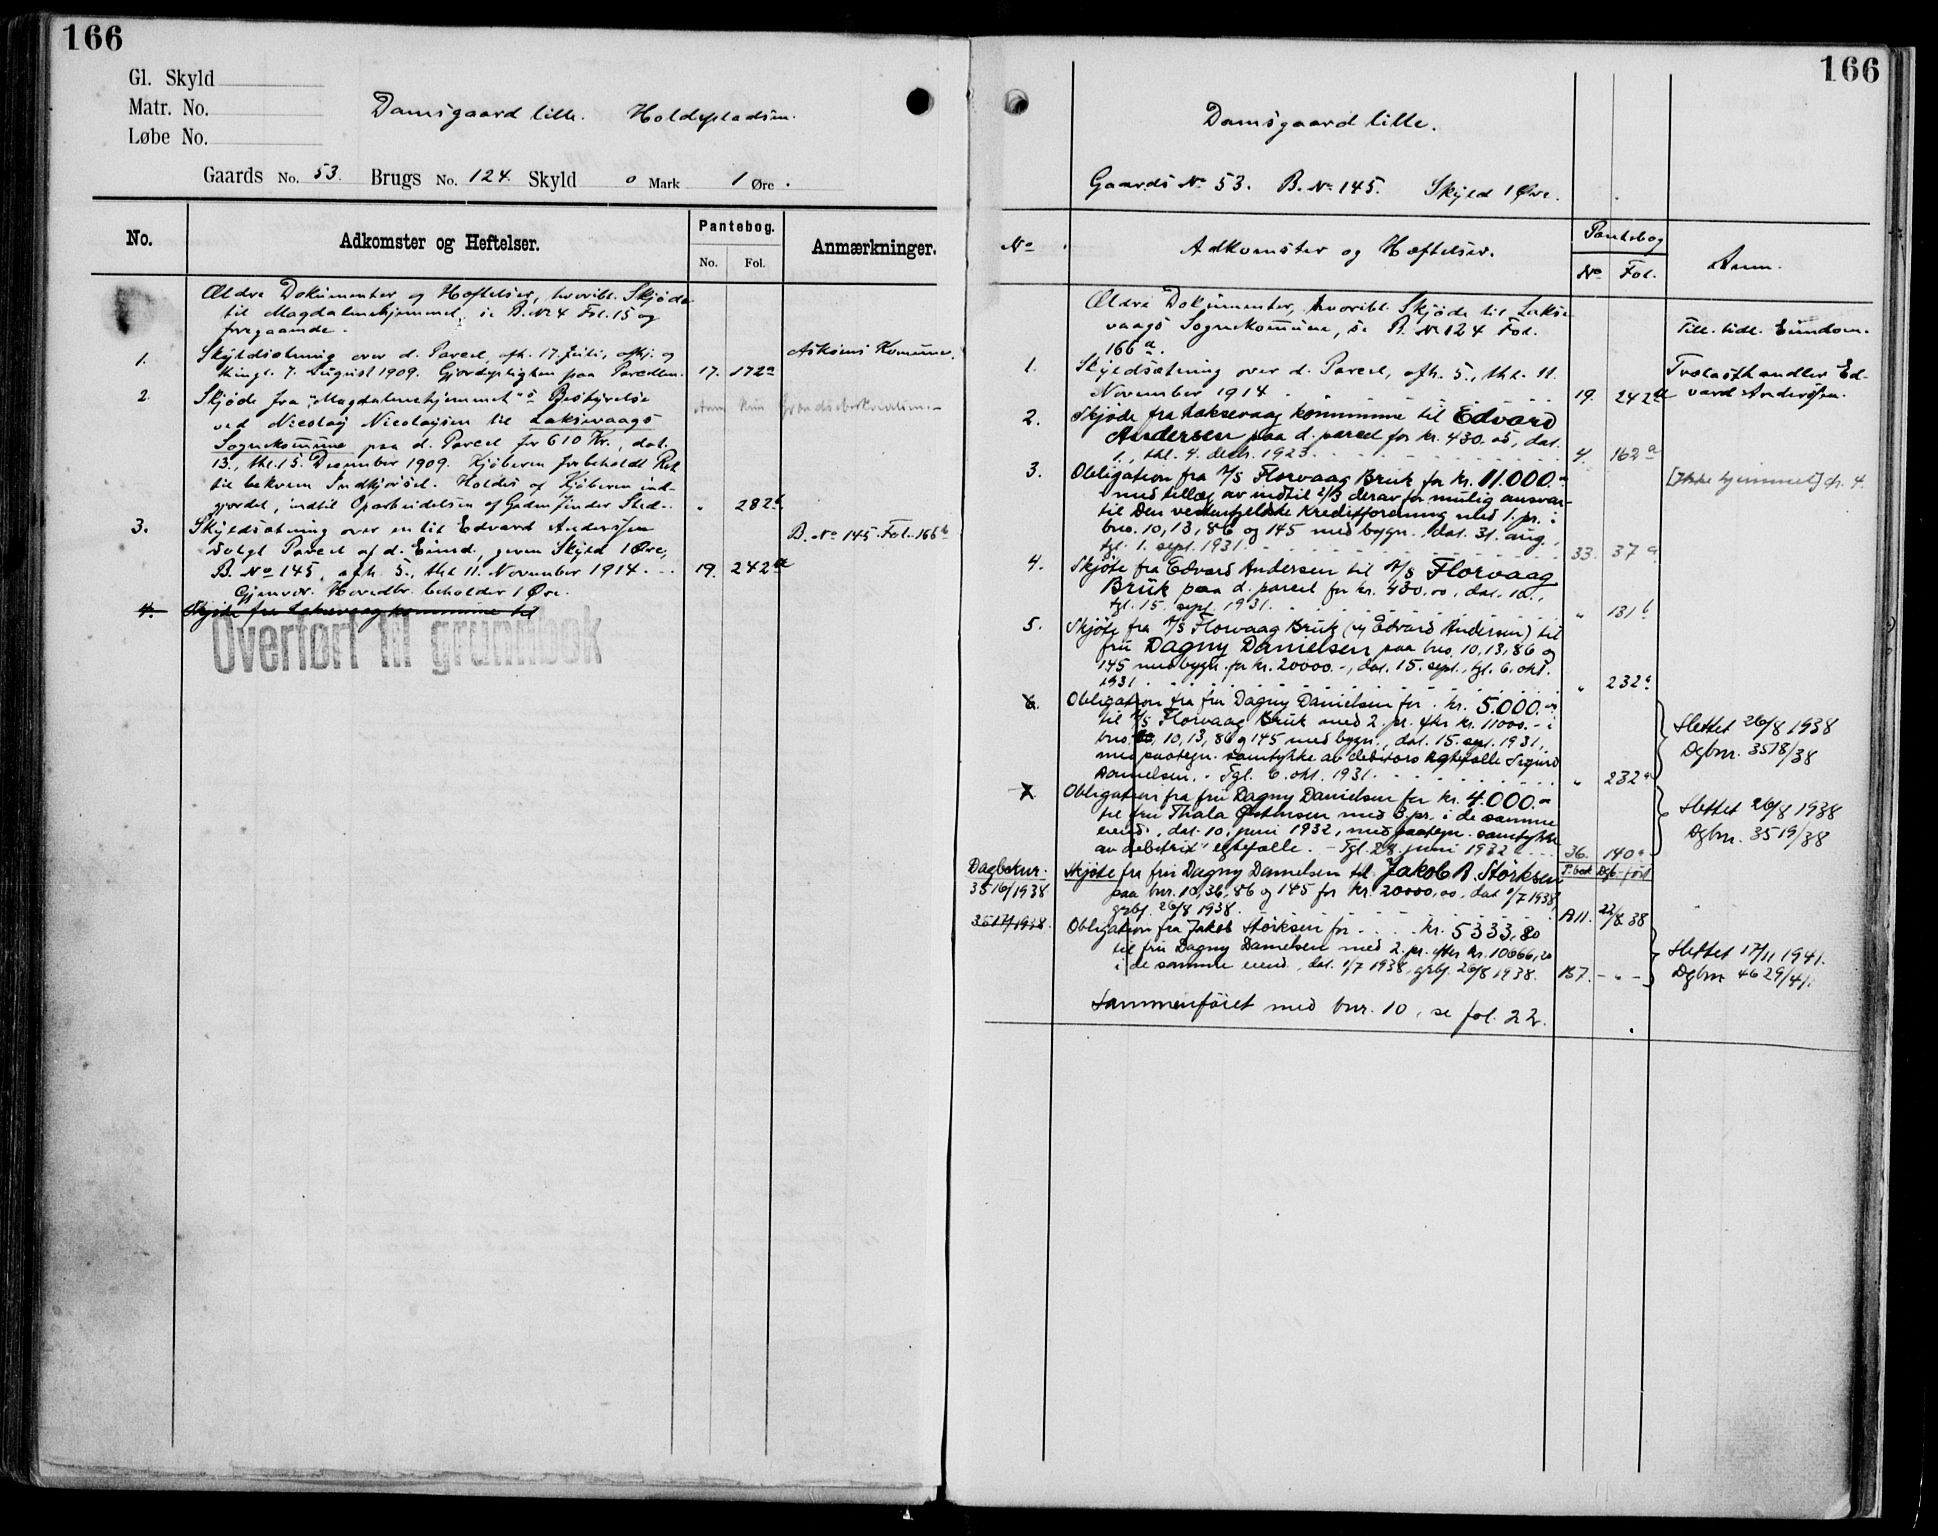 166
Gl. Skyld
Matr. No.
Løbe No.
Damsgaard lille. Holdepladsen.
Gaards No. 53. Brugs No. 124. Skyld 0 Mark 1 Øre.
No.
Adkomster og Heftelser.
Pantebog.
No. Fol.
Anmærkninger.
Ældre Dokumenter og Hæftelser, hvoribl. Skjøde
til Magdalenehjemmet, se B. No 4 Fol. 15 og
foregaaende.
1. Skyldsætning over d. Parcel, afh. 17. Juli, afhj. og
thingl. 7. August 1909. Gjerdepligten paa Parcellen. 17. 172a
Askøens Komune.
2. Skjøde fra "Magdalenehjemmet"s Bestyrelse
ved Nicolay Nicolaysen til Laksevaags
Sognekommune paa d. Parcel for 610 Kr., dat.
13., thl. 15. December 1909. Kjøberen forbeholdt Ret
til bekvem Indkjørsel. Holdes af Kjøberen ind-
gjerdet, indtil Oparbeidelsen af Gaden finder Sted. " 282b
3. Skyldsætning over en til Edvard Andersen
solgt Parcel af d. Eiend., given Skyld 1 Øre,
B. No 145, afh. 5., thl. 11. November 1914. 19. 242a
B. No 145. Fol. 166b
Gjenvær. Hovedbr. beholder 1 Øre.
4. Skjøte fra Laksevaag kommune til
Overført til grunnbok
166
Damsgaard lille.
Gaards No 53. B. No 145. Skyld 1 Øre.
No
Adkomster og Hæftelser.
Pantebog
No Fol.
Anm.
Ældre Dokumenter, hvoribl. Skjøde til Lakse-
vaags Sognekommune, se B. No 124 Fol.
166a.
Till. tidl. Eiendom.
1. Skyldsætning over d. Parcel, afh. 5., thl. 11.
November 1914 19. 242a
Trælasthandler Ed-
vard Andersen.
2. Skjøde fra Laksevaag kommune til Edvard
Andersen paa d. parcel for kr. 430.05, dat.
1., thl. 4. decb. 1923. 4. 162a
3. Obligation fra A/S Florvaag Bruk for kr. 11.000.-
med tillæg av indtil 2/3 derav for mulig ansvar
til Den vestenfjeldske Kreditforening med 1. pr. i
bno. 10, 13, 86 og 145 med bygn. dat. 31. aug.,
tgl. 1. sept. 1931. 33. 37a
[Ikke hjemmel] cfr. 4.
4. Skjøte fra Edvard Andersen til A/S Florvaag
Bruk paa d. parcel for kr. 430.00, dat. 10.,
tgl. 15. sept. 1931. " 131b
5. Skjøte fra A/S Florvaag Bruk (v/ Edvard Andersen) til
fru Dagny Danielsen paa bno. 10, 13, 86 og
145 med bygn. for kr. 20000.-, dat. 15. sept., tgl. 6. okt.
1931. " 232a
6. Obligation fra fru Dagny Danielsen for kr. 5.000.-
til A/S Florvaag Bruk med 2. pr. efter kr. 11000.- i
bno. 10, 13, 86 og 145 med bygn., dat. 15. sept. 1931,
med paategn. samtykke av debitors egtefælle Sigurd
Danielsen. - Tgl. 6. okt. 1931. " 232a
Slettet 26/8 1938
Dgbnr. 3518/38
7. Obligation fra fru Dagny Danielsen for kr. 4.000.-
til fru Thala Østensen med 3. pr. i de samme
eiend., dat. 10. juni 1932, med paategn. samtykke
av debitrix' egtefælle. - Tgl. 28. juni 1932 36. 140a
Slettet 26/8 1938
Dgbnr. 3519/38
Dagboknr. P.bok Dgb-ført
3516/1938 Skjøte fra fru Dagny Danielsen til Jakob B. Størksen
paa bnr. 10, 36, 86 og 145 for kr. 20000,00, dat 1/7 1938,
grbf. 26/8 1938. A11. 22/8.38
3517/1938. Obligation fra Jakob Størksen for kr. 5333,80
til fru Dagny Danielsen med 2. pr. efter kr. 10666,20
i de samme eiend., dat. 1/7 1938, grbf. 26/8 1938. B7. - " -
Slettet 17/11 1941.
Dgbnr 4629/41.
Sammenføiet med bnr. 10, se fol. 22.